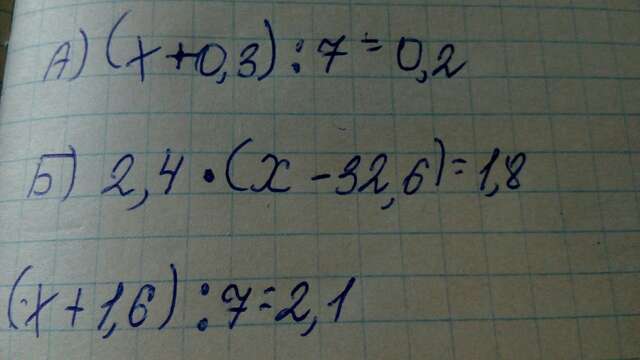 А) (x+0,3):7=0,2
Б) 2,4·(x-32,6)=1,8
(x+1,6):7=2,1